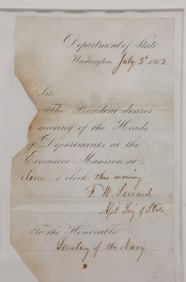 Department of State
Washington, July 5th 1863
Sir:
The President desires
a meeting of the Heads
of Departments at the
Executive Mansion at
o'clock this morning
F. W. Seward
Secy of State
To the Honorable
Secretary of the Navy